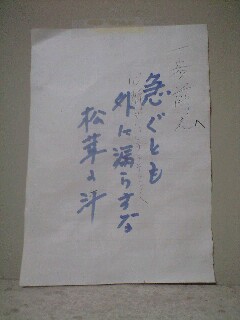 一歩前へ
急ぐとも
外に漏らすな
松茸の汁